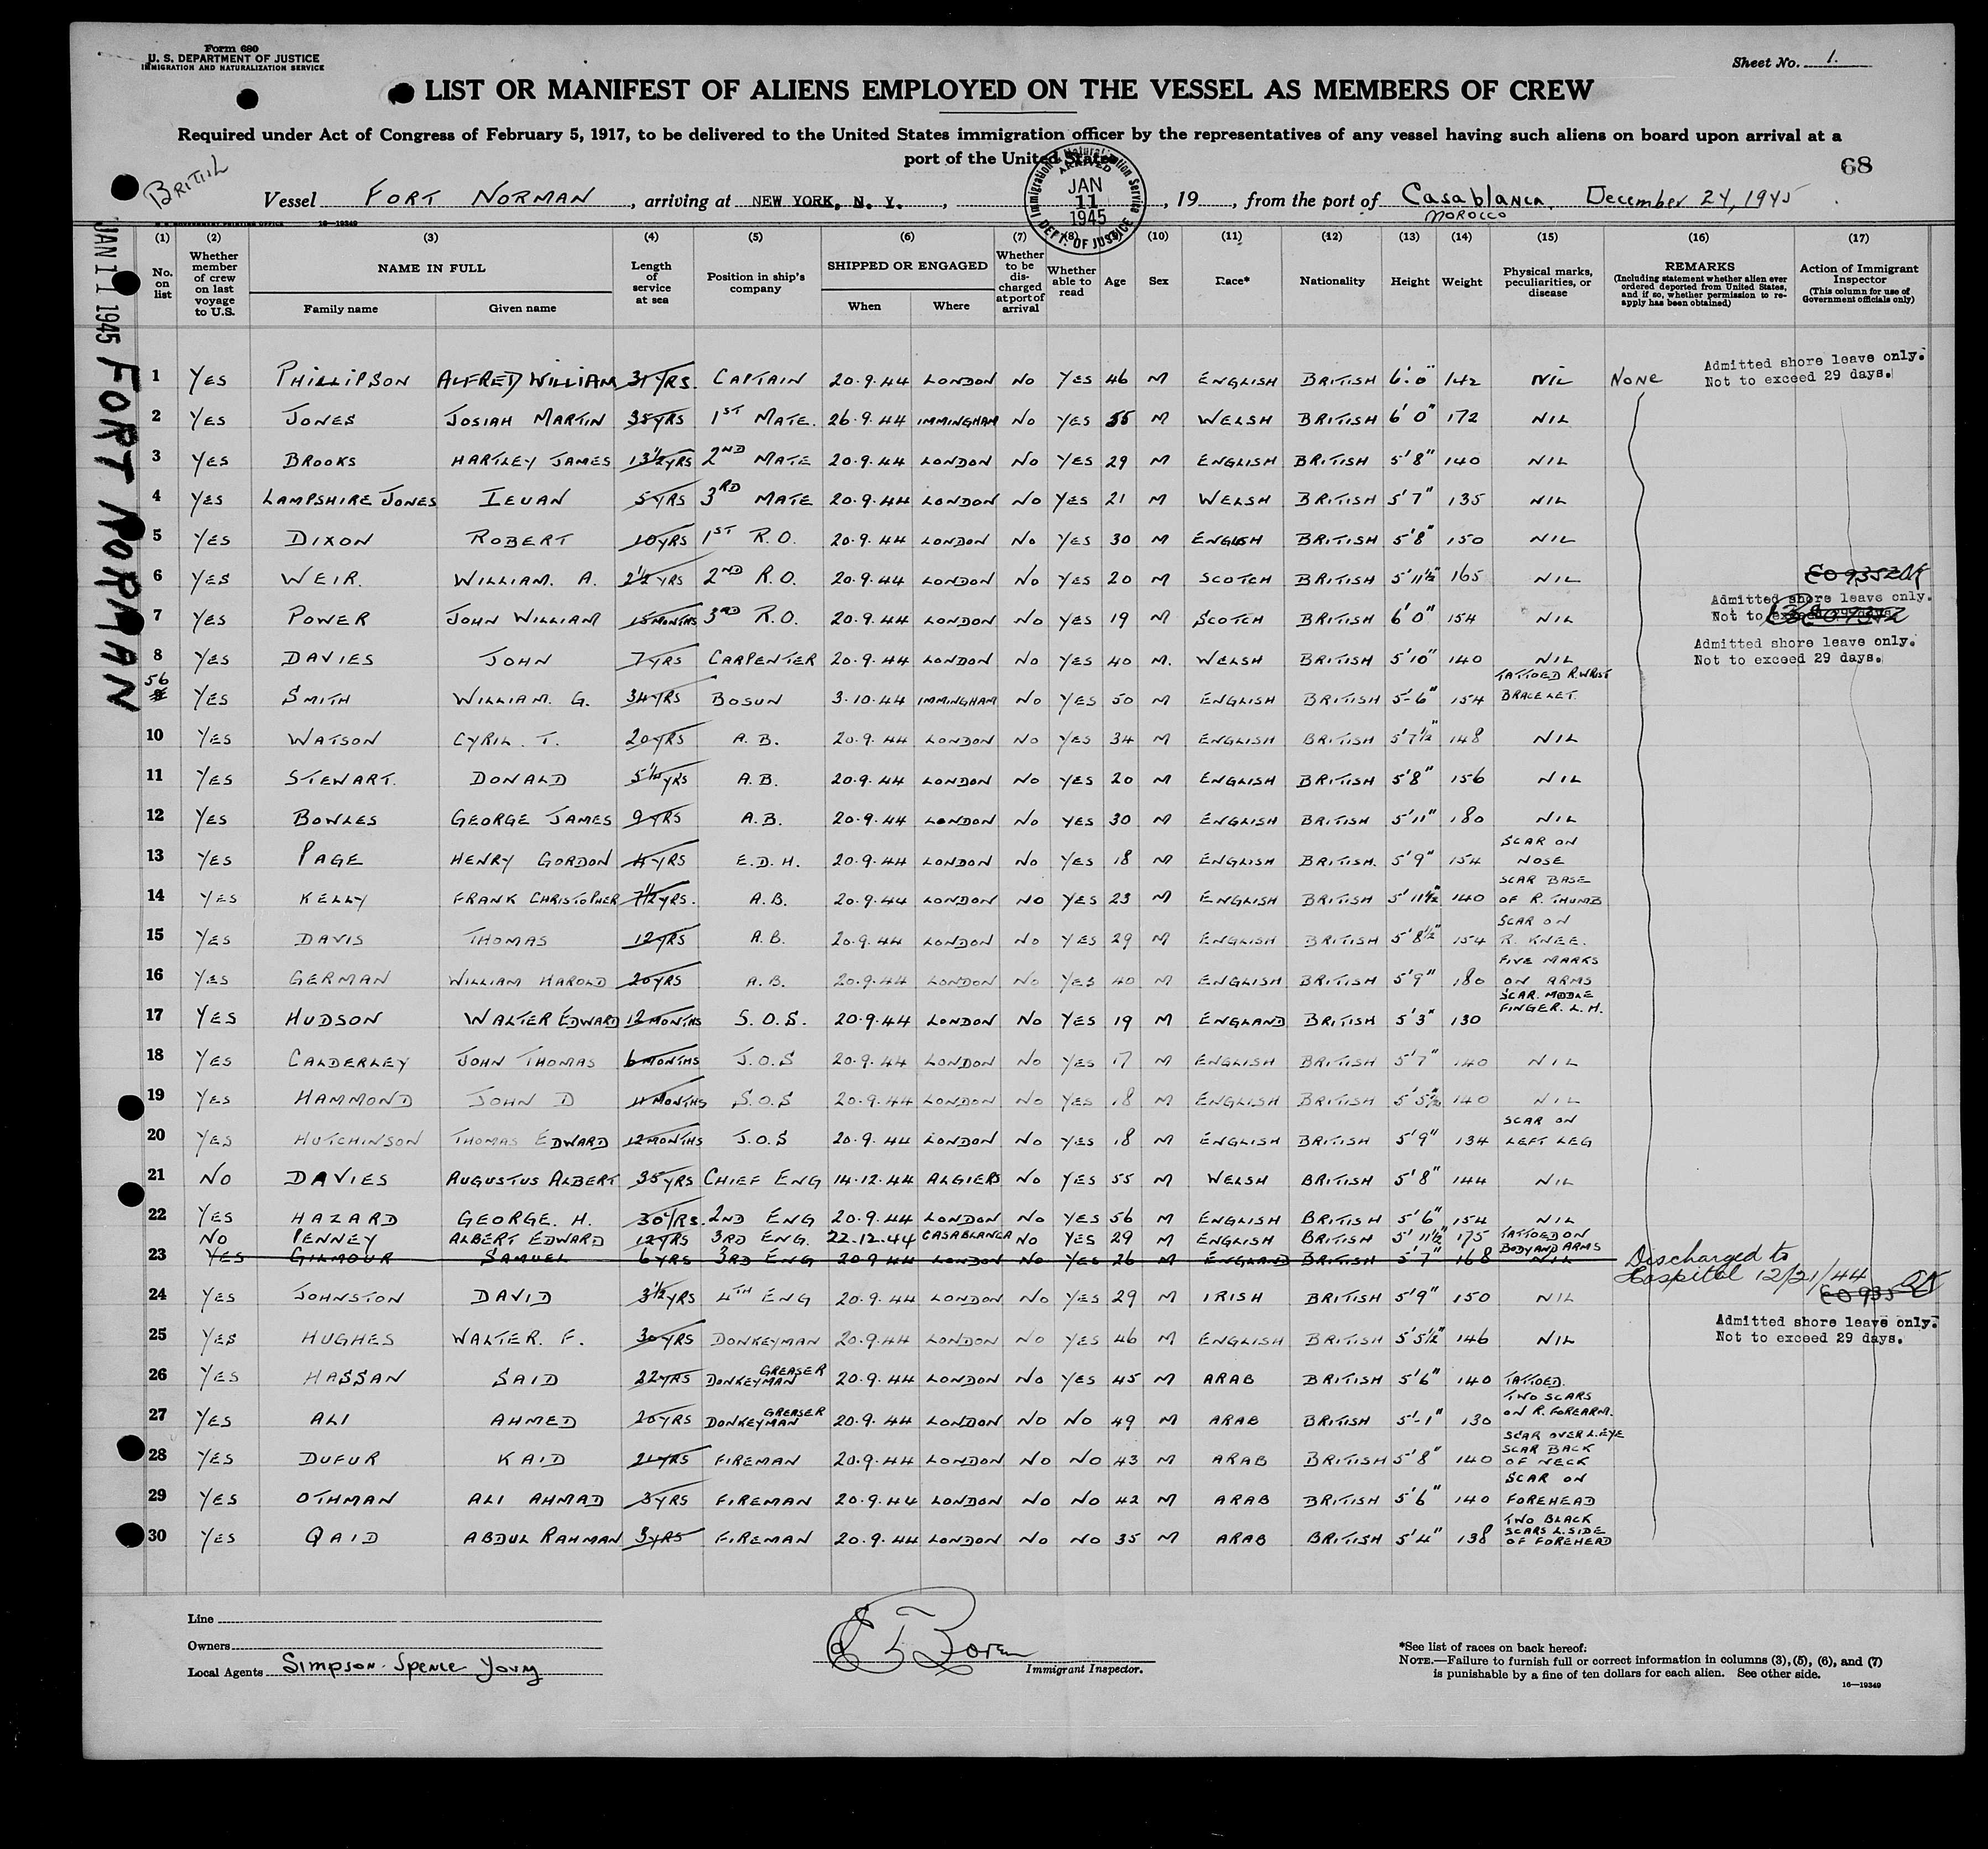 Form 680
U. S. DEPARTMENT OF JUSTICE
IMMIGRATION AND NATURALIZATION SERVICE
Sheet No. 1.
LIST OR MANIFEST OF ALIENS EMPLOYED ON THE VESSEL AS MEMBERS OF CREW
Required under Act of Congress of February 5, 1917, to be delivered to the United States immigration officer by the representatives of any vessel having such aliens on board upon arrival at a
port of the United States
68
BRITISH
Vessel FORT NORMAN, arriving at NEW YORK, N. Y., 19, from the port of Casablanca, December 24, 1945
MOROCCO
Immigration & Naturalization Service
ARRIVED
JAN
11
1945
DEPT. OF JUSTICE
JAN 11 1945 FORT NORMAN
U. S. GOVERNMENT PRINTING OFFICE 16—19349
(1) (2) (3) (4) (5) (6) (7) (8) (9) (10) (11) (12) (13) (14) (15) (16) (17)
No. on list
Whether member of crew on last voyage to U.S.
NAME IN FULL
Family name
Given name
Length of service at sea
Position in ship's company
SHIPPED OR ENGAGED
When
Where
Whether to be discharged at port of arrival
Whether able to read
Age
Sex
Race*
Nationality
Height
Weight
Physical marks, peculiarities, or disease
REMARKS
(Including statement whether alien ever ordered deported from United States, and if so, whether permission to reapply has been obtained)
Action of Immigrant Inspector
(This column for use of Government officials only)
1 YES PHILLIPSON ALFRED WILLIAM 31 YRS. CAPTAIN 20.9.44 LONDON NO YES 46 M ENGLISH BRITISH 6'.0" 142 NIL NONE Admitted shore leave only. Not to exceed 29 days.
2 YES JONES JOSIAH MARTIN 35 YRS 1ST MATE. 26.9.44 IMMINGHAM NO YES 55 M WELSH BRITISH 6' 0" 172 NIL
3 YES BROOKS HARTLEY JAMES 13½ YRS 2ND MATE 20.9.44 LONDON NO YES 29 M ENGLISH BRITISH 5'8" 140 NIL
4 YES LAMPSHIRE JONES IEUAN 5 YRS 3RD MATE 20.9.44 LONDON NO YES 21 M WELSH BRITISH 5'7" 135 NIL
5 YES DIXON ROBERT 10 YRS 1ST R.O. 20.9.44 LONDON NO YES 30 M ENGLISH BRITISH 5'8" 150 NIL
6 YES WEIR. WILLIAM. A. 2½ YRS 2ND R.O. 20.9.44 LONDON NO YES 20 M SCOTCH BRITISH 5'11½" 165 NIL EO 9352
7 YES POWER JOHN WILLIAM 15 MONTHS 3RD R.O. 20.9.44 LONDON NO YES 19 M SCOTCH BRITISH 6'0" 154 NIL Admitted shore leave only. Not to exceed 29 days.
8 YES DAVIES JOHN 7 YRS CARPENTER 20.9.44 LONDON NO YES 40 M. WELSH BRITISH 5'10" 140 NIL Admitted shore leave only. Not to exceed 29 days.
56 YES SMITH WILLIAM. G. 34 YRS BOSUN 3.10.44 IMMINGHAM NO YES 50 M ENGLISH BRITISH 5'-6" 154 TATTOED R.WRIST BRACELET.
10 YES WATSON CYRIL. T. 20 YRS A.B. 20.9.44 LONDON NO YES 34 M ENGLISH BRITISH 5'7½" 148 NIL
11 YES STEWART. DONALD YRS A.B. 20.9.44 LONDON NO YES 20 M ENGLISH BRITISH 5'8" 156 NIL
12 YES BOWLES GEORGE JAMES 9 YRS A.B. 20.9.44 LONDON NO YES 30 M ENGLISH BRITISH 5'11" 180 NIL
13 YES PAGE HENRY GORDON 4 YRS E.D.H. 20.9.44 LONDON NO YES 18 M ENGLISH BRITISH. 5'9" 154 SCAR ON NOSE
14 YES KELLY FRANK CHRISTOPHER 7½ YRS. A.B. 20.9.44 LONDON NO YES 23 M ENGLISH BRITISH 5'11½" 140 SCAR BASE OF R. THUMB
15 YES DAVIS THOMAS 12 YRS A.B. 20.9.44 LONDON NO YES 29 M ENGLISH BRITISH 5'8½" 154 SCAR ON R. KNEE.
16 YES GERMAN WILLIAM HAROLD 20 YRS A.B. 20.9.44 LONDON NO YES 40 M ENGLISH BRITISH 5'9" 180 FIVE MARKS ON ARMS
17 YES HUDSON WALTER EDWARD 12 MONTHS S.O.S. 20.9.44 LONDON NO YES 19 M ENGLAND BRITISH 5'3" 130 SCAR. MIDDLE FINGER. L.H.
18 YES CALDERLEY JOHN THOMAS 6 MONTHS J.O.S 20.9.44 LONDON NO YES 17 M ENGLISH BRITISH 5'7" 140 NIL
19 YES HAMMOND JOHN D MONTHS S.O.S 20.9.44 LONDON NO YES 18 M ENGLISH BRITISH 5'5½" 140 NIL
20 YES HUTCHINSON THOMAS EDWARD 12 MONTHS J.O.S 20.9.44 LONDON NO YES 18 M ENGLISH BRITISH 5'9" 134 SCAR ON LEFT LEG
21 NO DAVIES AUGUSTUS ALBERT 35 YRS CHIEF ENG 14.12.44 ALGIERS NO YES 55 M WELSH BRITISH 5'8" 144 NIL
22 YES HAZARD GEORGE. H. 30 YRS. 2ND ENG 20.9.44 LONDON NO YES 56 M ENGLISH BRITISH 5'6" 154 NIL
NO PENNEY ALBERT EDWARD 12 YRS 3RD ENG. 22.12.44 CASABLANCA NO YES 29 M ENGLISH BRITISH 5'11½" 175 TATTOED ON BODY AND ARMS
23 YES GILMOUR SAMUEL 6 YRS 3RD ENG 20 9 44 LONDON NO YES 26 M ENGLAND BRITISH 5'7" 168 NIL Discharged to Hospital 12/21/44
24 YES JOHNSTON DAVID 3½ YRS 4TH ENG 20.9.44 LONDON NO YES 29 M IRISH BRITISH 5'9" 150 NIL EO 935
25 YES HUGHES WALTER. F. 30 YRS DONKEYMAN 20.9.44 LONDON NO YES 46 M ENGLISH BRITISH 5'5½" 146 NIL Admitted shore leave only. Not to exceed 29 days.
26 YES HASSAN SAID 22 YRS DONKEYMAN GREASER 20.9.44 LONDON NO YES 45 M ARAB BRITISH 5'6" 140 TATTOED.
27 YES ALI AHMED 20 YRS DONKEYMAN GREASER 20.9.44 LONDON NO NO 49 M ARAB BRITISH 5'-1" 130 TWO SCARS ON R. FOREARM.
28 YES DUFUR KAID 21 YRS FIREMAN 20.9.44 LONDON NO NO 43 M ARAB BRITISH 5'8" 140 SCAR OVER L.EYE SCAR BACK OF NECK
29 YES OTHMAN ALI AHMAD 3 YRS FIREMAN 20.9.44 LONDON NO NO 42 M ARAB BRITISH 5'6" 140 SCAR ON FOREHEAD
30 YES QAID ABDUL RAHMAN 3 YRS FIREMAN 20.9.44 LONDON NO NO 35 M ARAB BRITISH 5'4" 138 TWO BLACK SCARS L.SIDE OF FOREHEAD
Line
Owners
Local Agents Simpson. Spence Young
Immigrant Inspector.
*See list of races on back hereof.
NOTE.—Failure to furnish full or correct information in columns (3), (5), (6), and (7)
is punishable by a fine of ten dollars for each alien. See other side.
16—19349